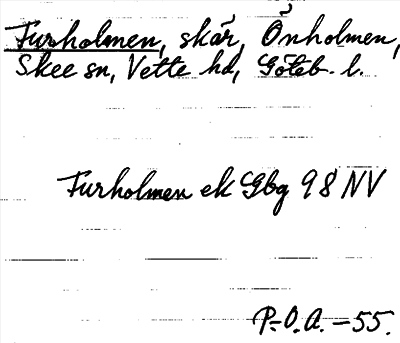 Furholmen, skär, Önholmen,
Skee sn, Vette hd, Göteb. l.
Furholmen ek Gbg 98 NV
P.-O.A. - 55.